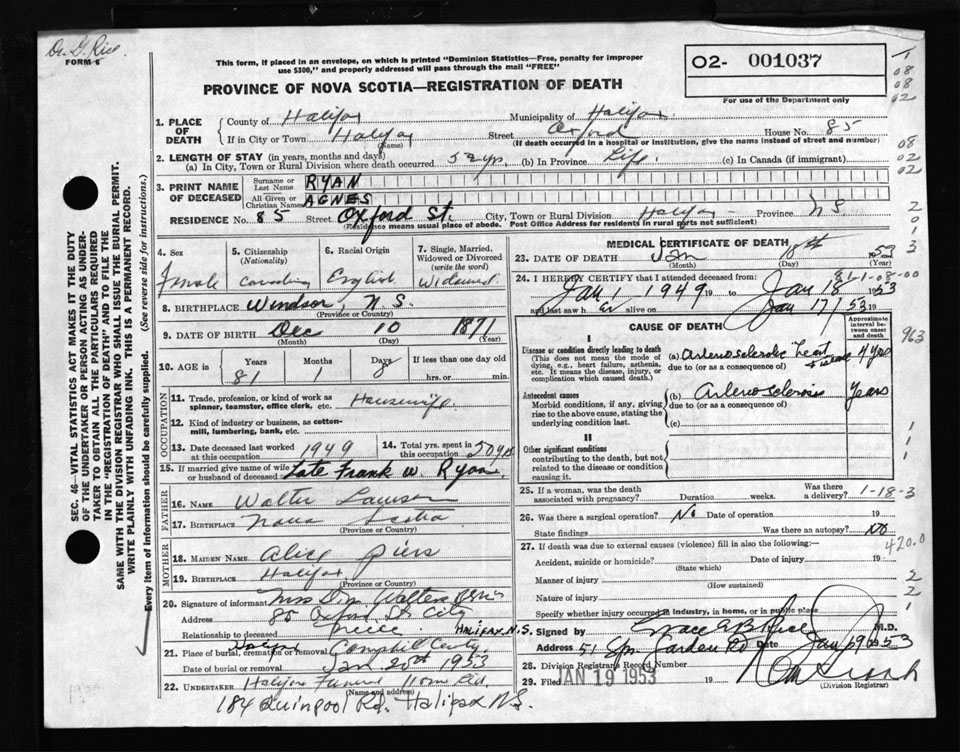 Dr. G. Rice
FORM 6
This form, if placed in an envelope, on which is printed "Dominion Statistics—Free, penalty for improper
use $300," and properly addressed will pass through the mail "FREE"
O2- 001037
For use of the Department only
PROVINCE OF NOVA SCOTIA—REGISTRATION OF DEATH
1. PLACE OF DEATH
County of Halifax Municipality of Halifax
If in City or Town Halifax Street Oxford House No. 85
(Name) (If death occurred in a hospital or institution, give the name instead of street and number)
2. LENGTH OF STAY (in years, months and days)
(a) In City, Town or Rural Division where death occurred 52 yrs. (b) In Province Life. (c) In Canada (if immigrant)
3. PRINT NAME OF DECEASED
Surname or Last Name RYAN
All Given or Christian Names AGNES
RESIDENCE No. 85 Street Oxford St. City, Town or Rural Division Halifax Province N S
(Residence means usual place of abode. Post Office Address for residents in rural parts not sufficient)
4. Sex Female
5. Citizenship (Nationality) Canadian
6. Racial Origin English
7. Single, Married, Widowed or Divorced (write the word) Widowed
8. BIRTHPLACE Windsor N. S.
(Province or Country)
9. DATE OF BIRTH Dec 10 1871
(Month) (Day) (Year)
10. AGE Years 81 Months 1 Days 8 If less than one day old
hrs. or min.
OCCUPATION
11. Trade, profession, or kind of work as
spinner, teamster, office clerk, etc. Housewife
12. Kind of industry or business, as cotton-
mill, lumbering, bank, etc.
13. Date deceased last worked at this occupation 1949
14. Total yrs. spent in this occupation 50 yrs
15. If married give name of wife or husband of deceased Late Frank W. Ryan
FATHER
16. NAME Walter Lawson
17. BIRTHPLACE Nova Scotia
(Province or Country)
MOTHER
18. MAIDEN NAME Alice Piers
19. BIRTHPLACE Halifax
(Province or Country)
20. Signature of informant Mrs Walter
Address 85 Oxford St. City
Relationship to deceased niece
21. Place of burial, cremation or removal Camphill Cemty.
Date of burial or removal Jan. 20th 1953
22. UNDERTAKER Halifax Funeral Home Ltd.
(Name and address)
184 Quinpool Rd. Halifax N.S.
MEDICAL CERTIFICATE OF DEATH
23. DATE OF DEATH Jan 18th 1953
(Month) (Day) (Year)
24. I HEREBY CERTIFY that I attended deceased from:
Jan 1 1949 19 to Jan 18 1953
and last saw h er alive on Jan 17/53 19
CAUSE OF DEATH
Approximate interval between onset and death
I
Disease or condition directly leading to death
(This does not mean the mode of dying, e.g., heart failure, asthenia, etc. It means the disease, injury, or complication which caused death.)
(a) Arteriosclerotic heart disease 4 years
due to (or as a consequence of)
Antecedent causes
Morbid conditions, if any, giving rise to the above cause, stating the underlying condition last.
(b) Arteriosclerosis Years
due to (or as a consequence of)
(c)
II
Other significant conditions
contributing to the death, but not related to the disease or condition causing it.
25. If a woman, was the death associated with pregnancy? Duration weeks. Was there a delivery?
1-18-3
26. Was there a surgical operation? No Date of operation 19
State findings Was there an autopsy? No
420.0
27. If death was due to external causes (violence) fill in also the following:—
Accident, suicide or homicide? Date of injury 19
(State which)
Manner of injury
(How sustained)
Nature of injury
Specify whether injury occurred in industry, in home, or in public place
HALIFAX, N.S. Signed by Grace E B Rice M.D.
Address 51 Spr. Garden Rd Date Jan 19 1953
28. Division Registrar's Record Number
29. Filed JAN 19 1953 19
(Division Registrar)
SEC. 46—VITAL STATISTICS ACT MAKES IT THE DUTY
OF THE UNDERTAKER OR PERSON ACTING AS UNDER-
TAKER TO OBTAIN ALL THE PARTICULARS REQUIRED
IN THE "REGISTRATION OF DEATH" AND TO FILE THE
SAME WITH THE DIVISION REGISTRAR WHO SHALL ISSUE THE BURIAL PERMIT.
WRITE PLAINLY WITH UNFADING INK. THIS IS A PERMANENT RECORD.
Every item of information should be carefully supplied. (See reverse side for instructions.)